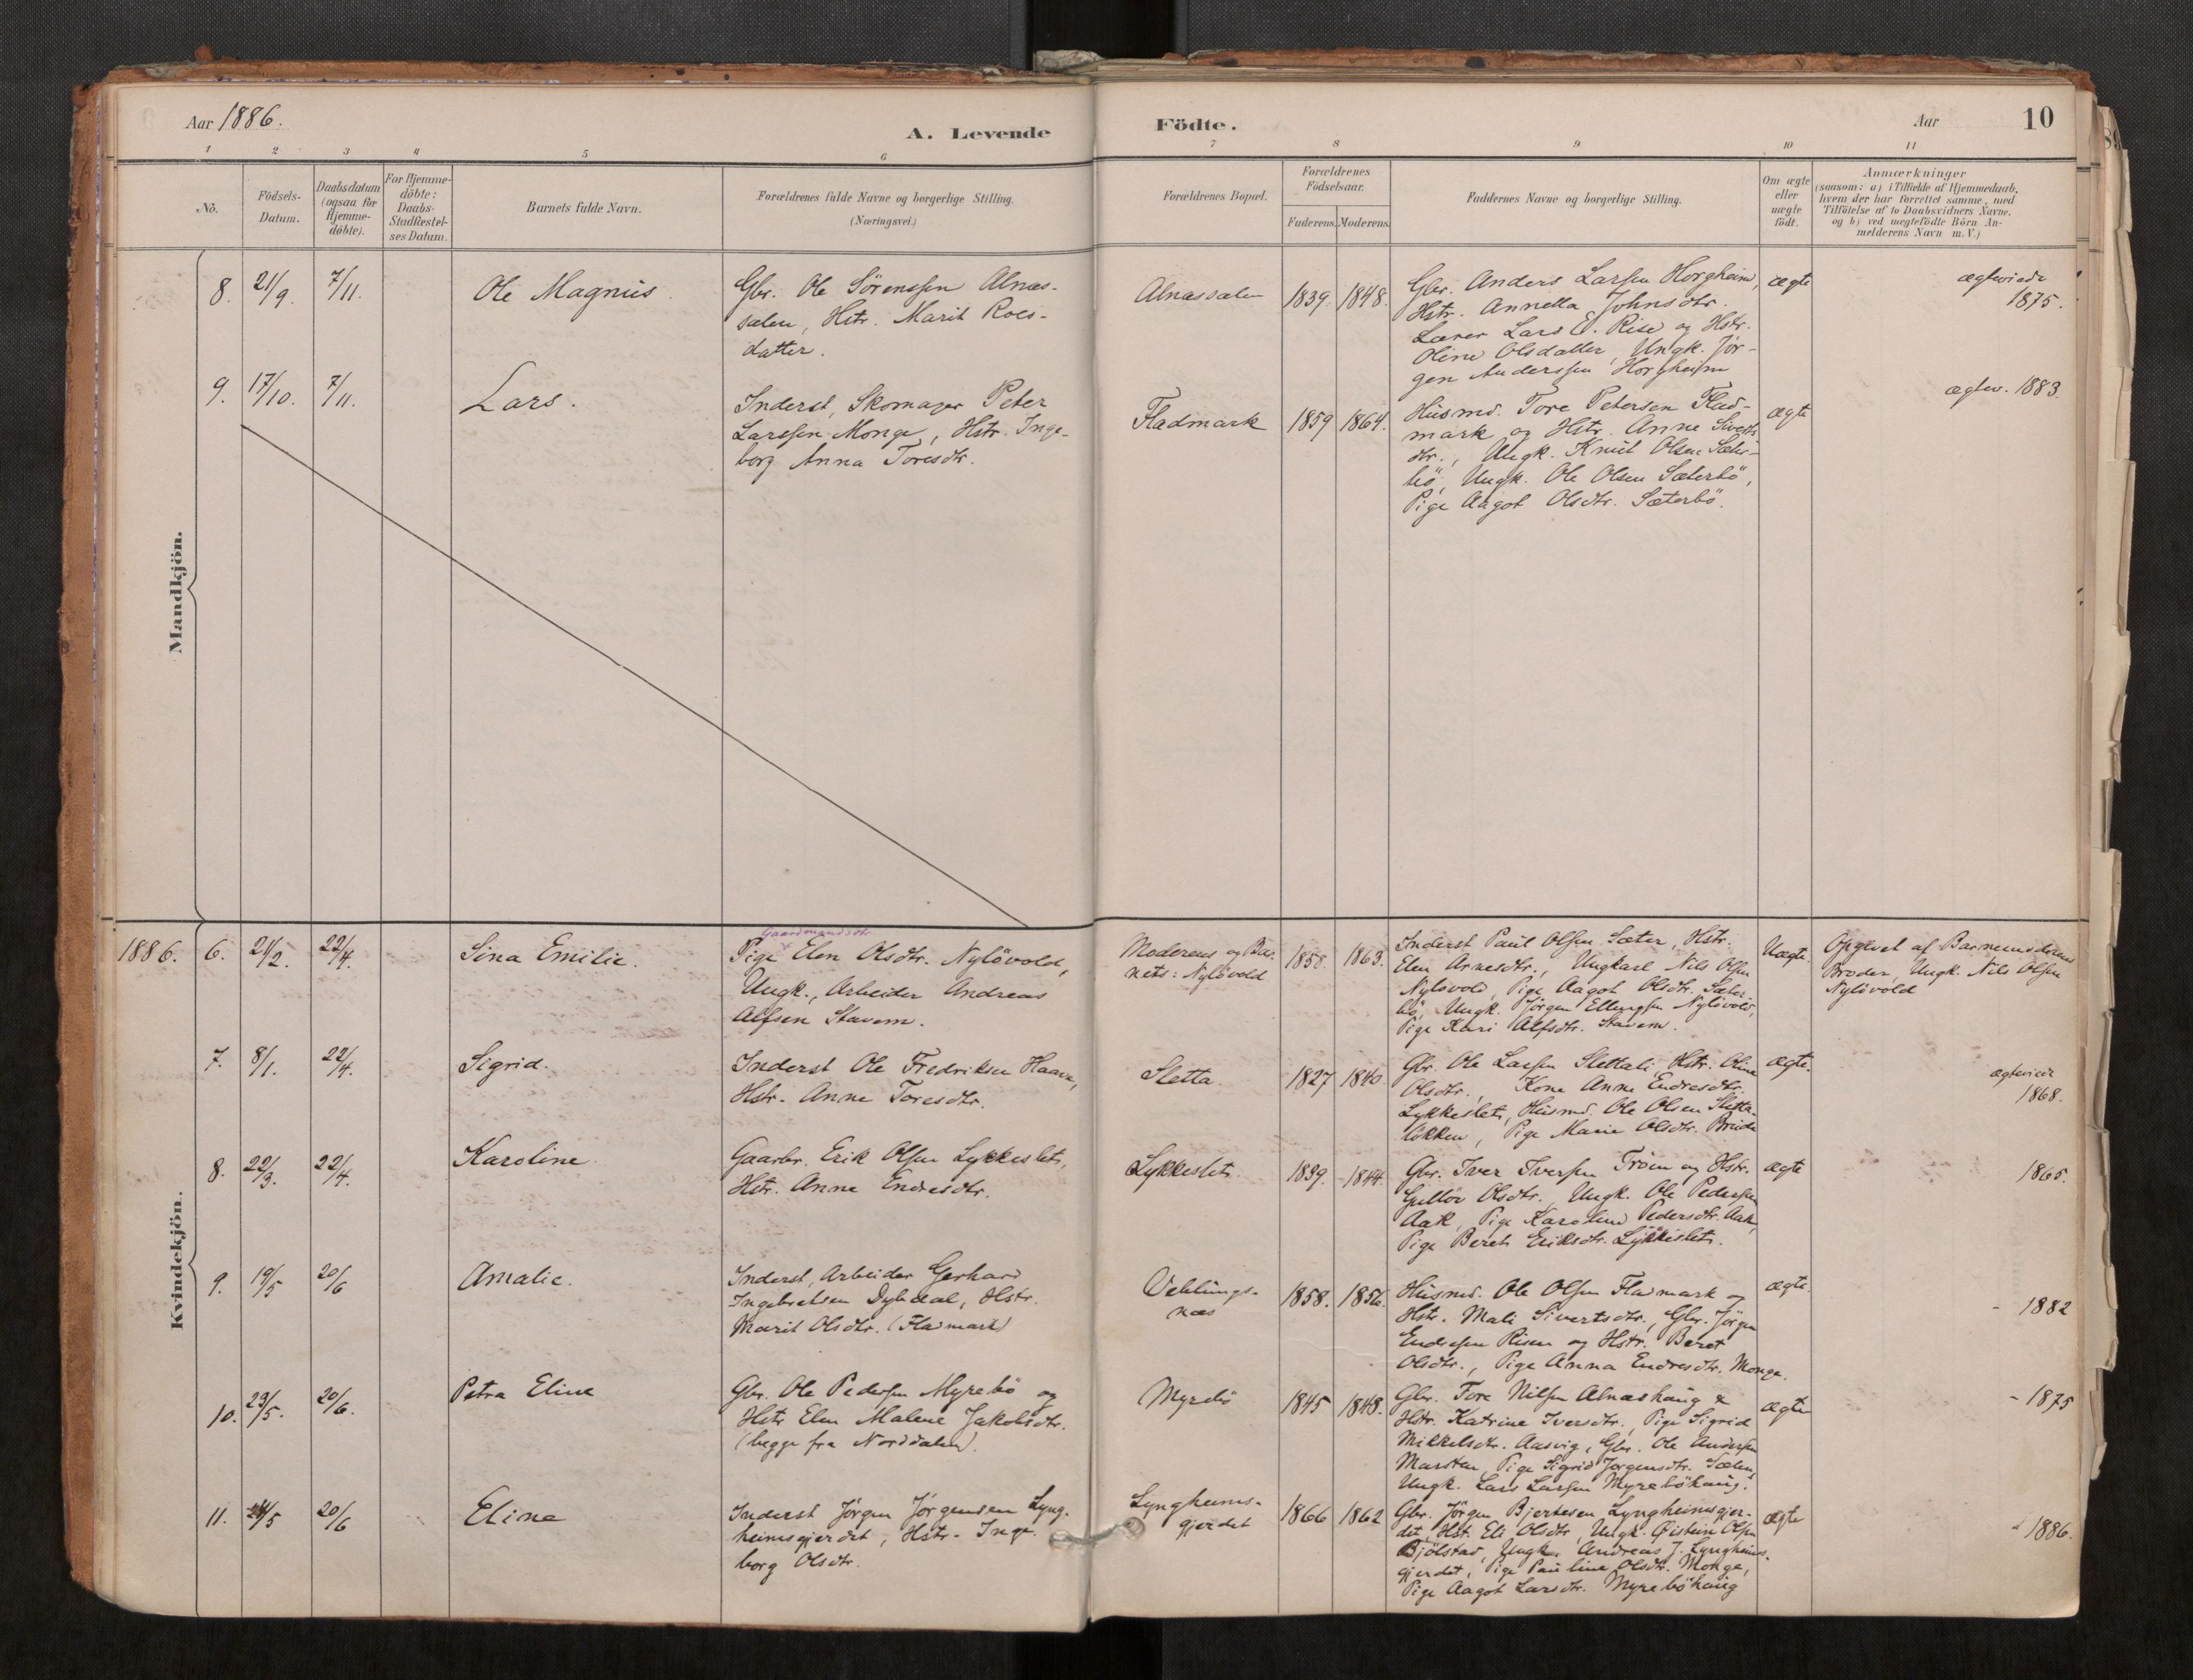 Aar 1886.
A. Levende
Födte.
Aar
10
1 2 3 4 5 6 7 8 9 10 11
No.
Födsels-
Datum.
Daabsdatum
(ogsaa for
Hjemme-
döbte).
For Hjemme-
döbte:
Daabs-
Stadfæstel-
ses Datum.
Barnets fulde Navn.
Forældrenes fulde Navne og borgerlige Stilling.
(Næringsvei.)
Forældrenes Bopæl.
Forældrenes
Födselsaar.
Faderens. Moderens.
Faddernes Navne og borgerlige Stilling.
Om ægte
eller
uægte
födt.
Anmærkninger
(saasom: a) i Tilfælde af Hjemmedaab,
hvem der har forrettet samme, med
Tilföielse af to Daabsvidners Navne,
og b) ved uægtefödte Börn An-
melderens Navn m. V.)
Mandkjön.
8. 21/9. 7/11. Ole Magnus.
Gbr. Ole Sørenssen Alnæs-
sælen, Hstr. Marit Roes-
datter.
Alnæssælen 1839. 1848.
Gbr. Anders Larsen Horgheim,
Hstr. Annetta Johnsdtr.
Lærer Lars E. Rise og Hstr.
Oline Olsdatter, Ungk. Jör-
gen Anderssen Horgheim
ægte
ægteviede
1875.
9. 17/10. 7/11. Lars.
Inderst, Skomager Peter
Larssen Monge, Hstr. Inge-
borg Anna Toresdtr.
Fladmark 1859 1864.
Husmd. Tore Petersen Flad-
mark og Hstr. Anne Siverts
dtr., Ungk. Knut Olsen Sæter-
bö, Ungk. Ole Olsen Sæterbö,
Pige Aagot Olsdtr. Sæterbö.
ægte
ægtev. 1883.
Kvindekjön.
1886. 6. 21/2. 22/4. Sina Emilie.
Gaardmandsdtr.
Pige Elen Olsdtr. Nylövold,
Ungk., Arbeider Andreas
Alfsen Stavem.
Moderens og Bar-
nets: Nylövold
1858. 1863.
Inderst Paul Olsen Sæter, Hstr.
Elen Arnesdtr., Ungkarl Nils Olsen
Nylövold, Pige Aagot Olsdtr. Sæter-
bö, Ungk. Jörgen Ellingsen Nylövold,
Pige Kari Alfsdtr. Stavem.
Uægte.
Opgivet af Barnemoderens
Broder, Ungk. Nils Olsen
Nylövold
7. 8/1. 22/4. Sigrid.
Inderst Ole Fredriksen Haave,
Hstr. Anne Toresdtr.
Sletta. 1827 1840.
Gbr. Ole Larsen Slettali, Hstr. Oline
Olsdtr., Kone Anne Endresdtr.
Lykkeslet, Husmd. Ole Olsen Sletta-
lökken, Pige Marie Olsdtr. Breide
ægte.
ægteviede
1868.
8. 22/3. 22/4. Karoline.
Gaarbr. Erik Olsen Lykkeslet,
Hstr. Anne Endresdtr.
Lykkeslet. 1839. 1844.
Gbr. Iver Iversen Tröen og Hstr.
Gullöv Olsdtr., Ungk. Ole Pedersen
Aak, Pige Karoline Pedersdtr. Aak,
Pige Beret Eriksdtr. Lykkeslet.
ægte
1865.
9. 19/5 20/6 Amalie.
Inderst, Arbeider Gerhard
Ingebretsen Dybdal, Hstr.
Marit Olsdtr. (Fladmark)
Veblungs-
næs
1858. 1856.
Husmd. Ole Olsen Fladmark og
Hstr. Mali Sivertsdtr., Gbr. Jörgen
Endresen Risen og Hstr. Beret
Olsdtr., Pige Anna Endresdtr. Monge.
ægte.
- 1882
10. 23/5. 20/6. Petra Eline
Gbr. Ole Pedersen Myrebö og
Hstr Elen Malene Jakobsdtr.
(begge fra Norddalen).
Myrebö 1845 1848.
Gbr. Tore Nilsen Alnæshaug &
Hstr. Katrine Iversdtr., Pige Sigrid
Mikkelsdtr. Aasvig, Gbr. Ole Andersen
Marsten, Pige Sigrid Jörgensdtr. Sælen,
Ungk. Lars Larsen Myrebökaug.
ægte
- 1875
11. 24/5 20/6 Eline
Inderst Jörgen Jörgensen Lyng-
heimsgjerdet, Hstr. Inge-
borg Olsdtr.
Lyngheims-
gjerdet
1866 1862
Gbr. Jörgen Bjertesen Lyngheimsgjer-
det, Hstr. Eli Olsdtr., Ungk. Øistein Olsen
Bjölstad, Ungk. Andreas J. Lyngheims-
gjerdet, Pige Pauline Olsdtr. Monge,
Pige Aagot Larsdtr. Myrebökaug
ægte
- 1886.